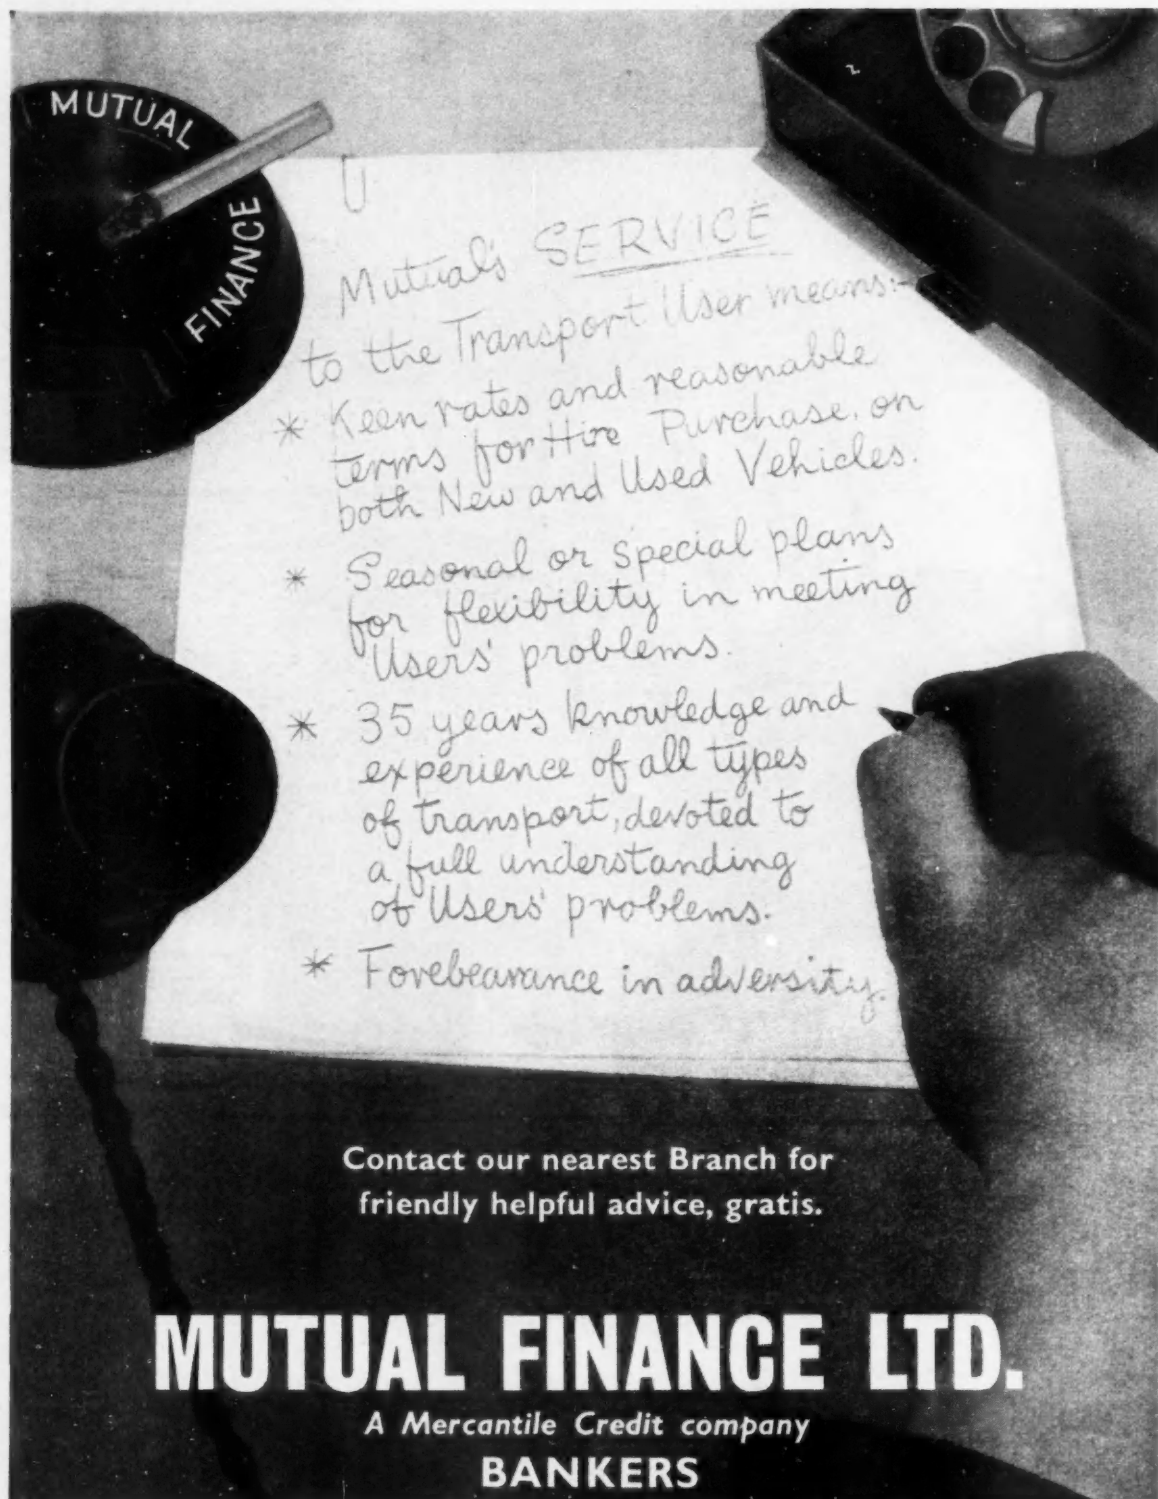 MUTUAL
FINANCE
Mutual's SERVICE
to the Transport User means:-
* Keen rates and reasonable
terms for Hire Purchase, on
both New and Used Vehicles.
* Seasonal or Special plans
for flexibility in meeting
Users' problems.
* 35 years knowledge and
experience of all types
of transport, devoted to
a full understanding
of Users' problems.
* Forebearance in adversity.
Contact our nearest Branch for
friendly helpful advice, gratis.
MUTUAL FINANCE LTD.
A Mercantile Credit company
BANKERS